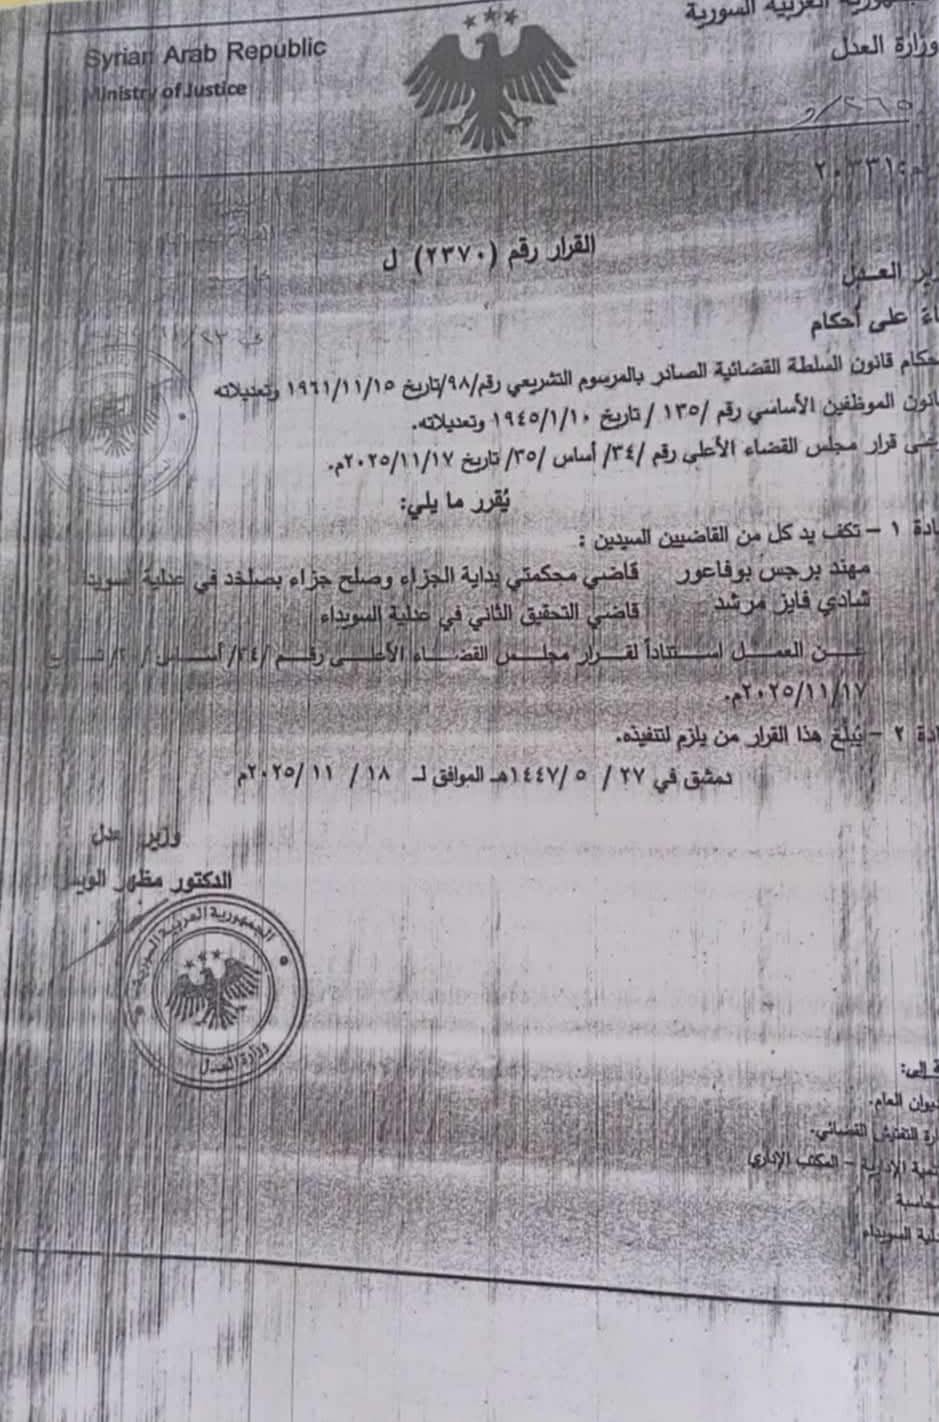 الجمهورية العربية السورية
Syrian Arab Republic
وزارة العدل
Ministry of Justice
القرار رقم (٢٣٧٠) ل
وزير العـدل
على أحكام
قانون السلطة القضائية الصادر بالمرسوم التشريعي رقم/٩٨/تاريخ ١٩٦١/١١/١٥ وتعديلاته
قانون الموظفين الأساسي رقم /١٣٥ / تاريخ ١٩٤٥/١/١٠ وتعديلاته.
قرار مجلس القضاء الأعلى رقم /٣٤/ أساس /٣٥/ تاريخ ٢٠٢٥/١١/١٧م.
يُقرر ما يلي:
ادة ١ – تكف يد كل من القاضيين السيدين :
مهند برجس بوفاعور قاضي محكمتي بداية الجزاء وصلح جزاء بصلخد في عدلية السويداء
شادي فايز مرشد قاضي التحقيق الثاني في عدلية السويداء
عـن العمـل استـناداً لقـرار مجلـس القضـاء الأعلـى رقـم /٣٤/ أسـاس
٢٠٢٥/١١/١٧م.
ادة ٢ – يُبلّغ هذا القرار من يلزم لتنفيذه.
دمشق في ٢٧ / ٥ /١٤٤٧هـ الموافق لـ ١٨ / ١١ /٢٠٢٥م
وزير العدل
الدكتور مظهر الويس
الجمهورية العربية السورية
وزارة العدل
ة إلى:
ديوان العام.
ارة التفتيش القضائي.
الإدارية – المكتب الإداري
محاسبة
دلية السويداء